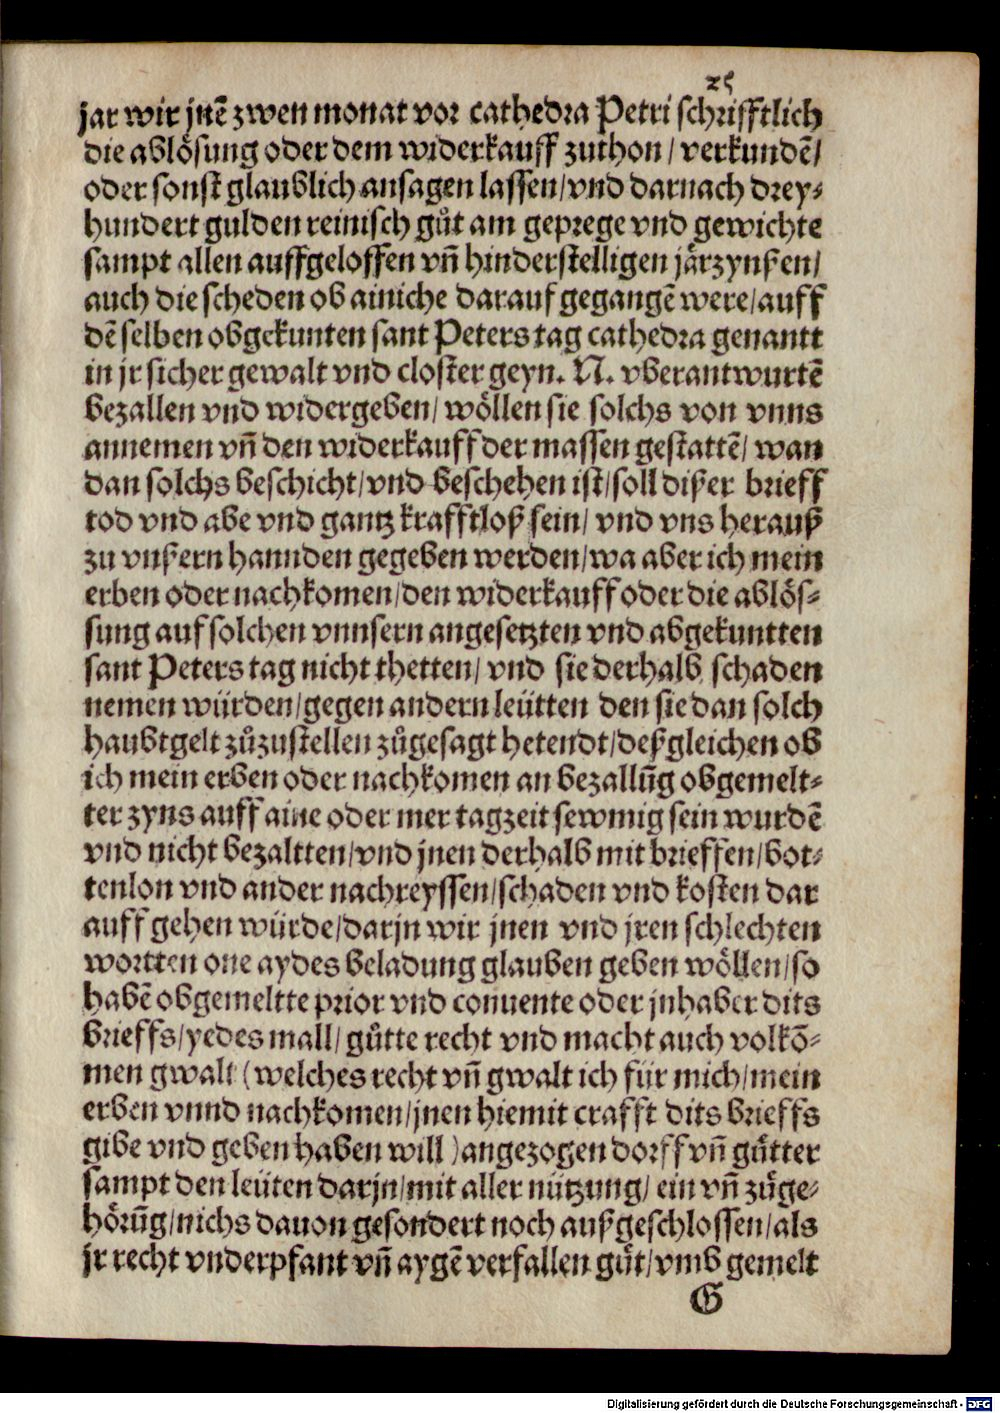 25
jar wir jnẽ zwen monat vor cathedra Petri schrifftlich
die ablösung oder dem widerkauff zuthon / verkundẽ /
oder sonst glaublich ansagen lassen / vnd darnach drey-
hundert gulden reinisch gůt am geprege vnd gewichte
sampt allen auffgeloffen vñ hinderstelligen järzynßen /
auch die scheden ob ainiche darauf gegangẽ were / auff
dẽ selben obgekunten sant Peters tag cathedra genantt
in jr sicher gewalt vnd closter geyn. N. vberantwurtẽ
bezallen vnd widergeben / wöllen sie solchs von vnns
annemen vñ den widerkauff der massen gestattẽ / wan
dan solchs beschicht / vnd beschehen ist / soll dißer brieff
tod vnd abe vnd gantz krafftloß sein / vnd vns herauß
zu vnßern hannden gegeben werden / wa aber ich mein
erben oder nachkomen / den widerkauff oder die ablös-
sung auf solchen vnnsern angesetzten vnd abgekuntten
sant Peters tag nicht thetten / vnd sie derhalb schaden
nemen würden / gegen andern leütten den sie dan solch
haubtgelt zůzustellen zůgesagt hetendt / deßgleichen ob
ich mein erben oder nachkomen an bezallũg obgemelt-
ter zyns auff aine oder mer tagzeit sewmig sein wurdẽ
vnd nicht bezaltten / vnd jnen derhalb mit brieffen / bot-
tenlon vnd ander nachreyssen / schaden vnd kosten dar
auff gehen würde / darjn wir jnen vnd jren schlechten
wortten one aydes beladung glauben geben wöllen / so
habẽ obgemeltte prior vnd conuente oder jnhaber dits
brieffs / yedes mall / gůtte recht vnd macht auch volkõ-
men gwalt (welches recht vñ gwalt ich für mich / mein
erben vnnd nachkomen / jnen hiemit crafft dits brieffs
gibe vnd geben haben will) angezogen dorff vñ gůtter
sampt den leüten darjn / mit aller nützung / ein vñ zůge-
hörũg / nichs dauon gesondert noch außgeschlossen / als
jr recht vnderpfant vñ aygẽ verfallen gůt / vmb gemelt
G
Digitalisierung gefördert durch die Deutsche Forschungsgemeinschaft - DFG